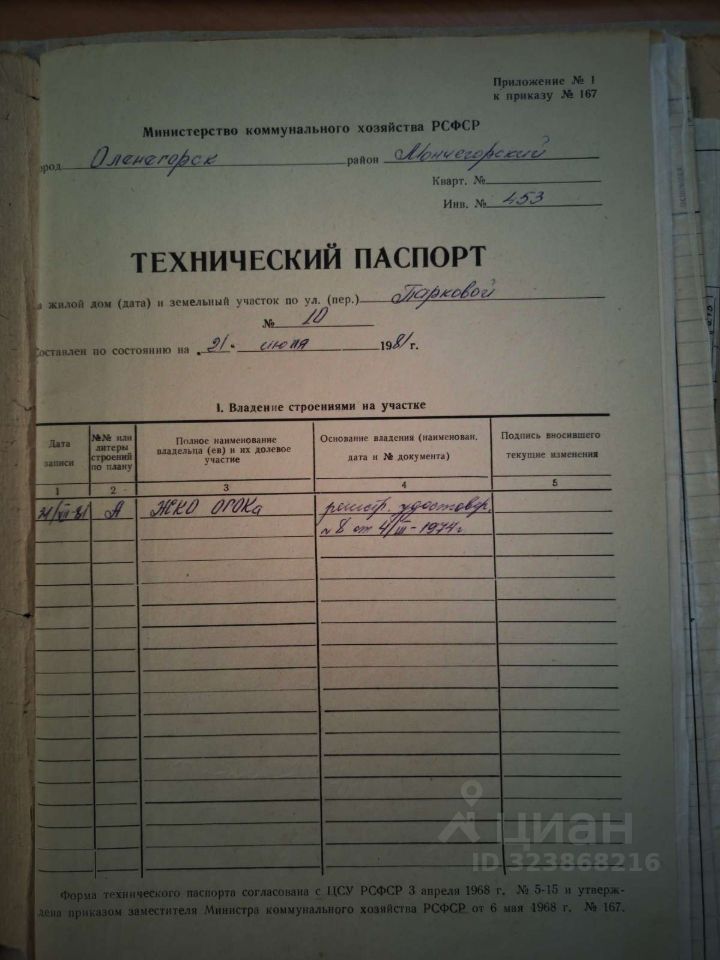 Приложение № 1
к приказу № 167
Министерство коммунального хозяйства РСФСР
ород Оленегорск район Мончегорский
Кварт. №
Инв. № 453
ТЕХНИЧЕСКИЙ ПАСПОРТ
а жилой дом (дата) и земельный участок по ул. (пер.) Парковой
№ 10
Составлен по состоянию на „21“ июля 1981 г.
I. Владение строениями на участке
Дата записи
№№ или литеры строений по плану
Полное наименование владельца (ев) и их долевое участие
Основание владения (наименован. дата и № документа)
Подпись вносившего текущие изменения
1 2 3 4 5
21/VII-81 А ЖКО ОГОКа регистр. удостовер.
№ 8 от 4/III-1974г.
Форма технического паспорта согласована с ЦСУ РСФСР 3 апреля 1968 г. № 5-15 и утверж-
дена приказом заместителя Министра коммунального хозяйства РСФСР от 6 мая 1968 г. № 167.
циан
ID 323868216